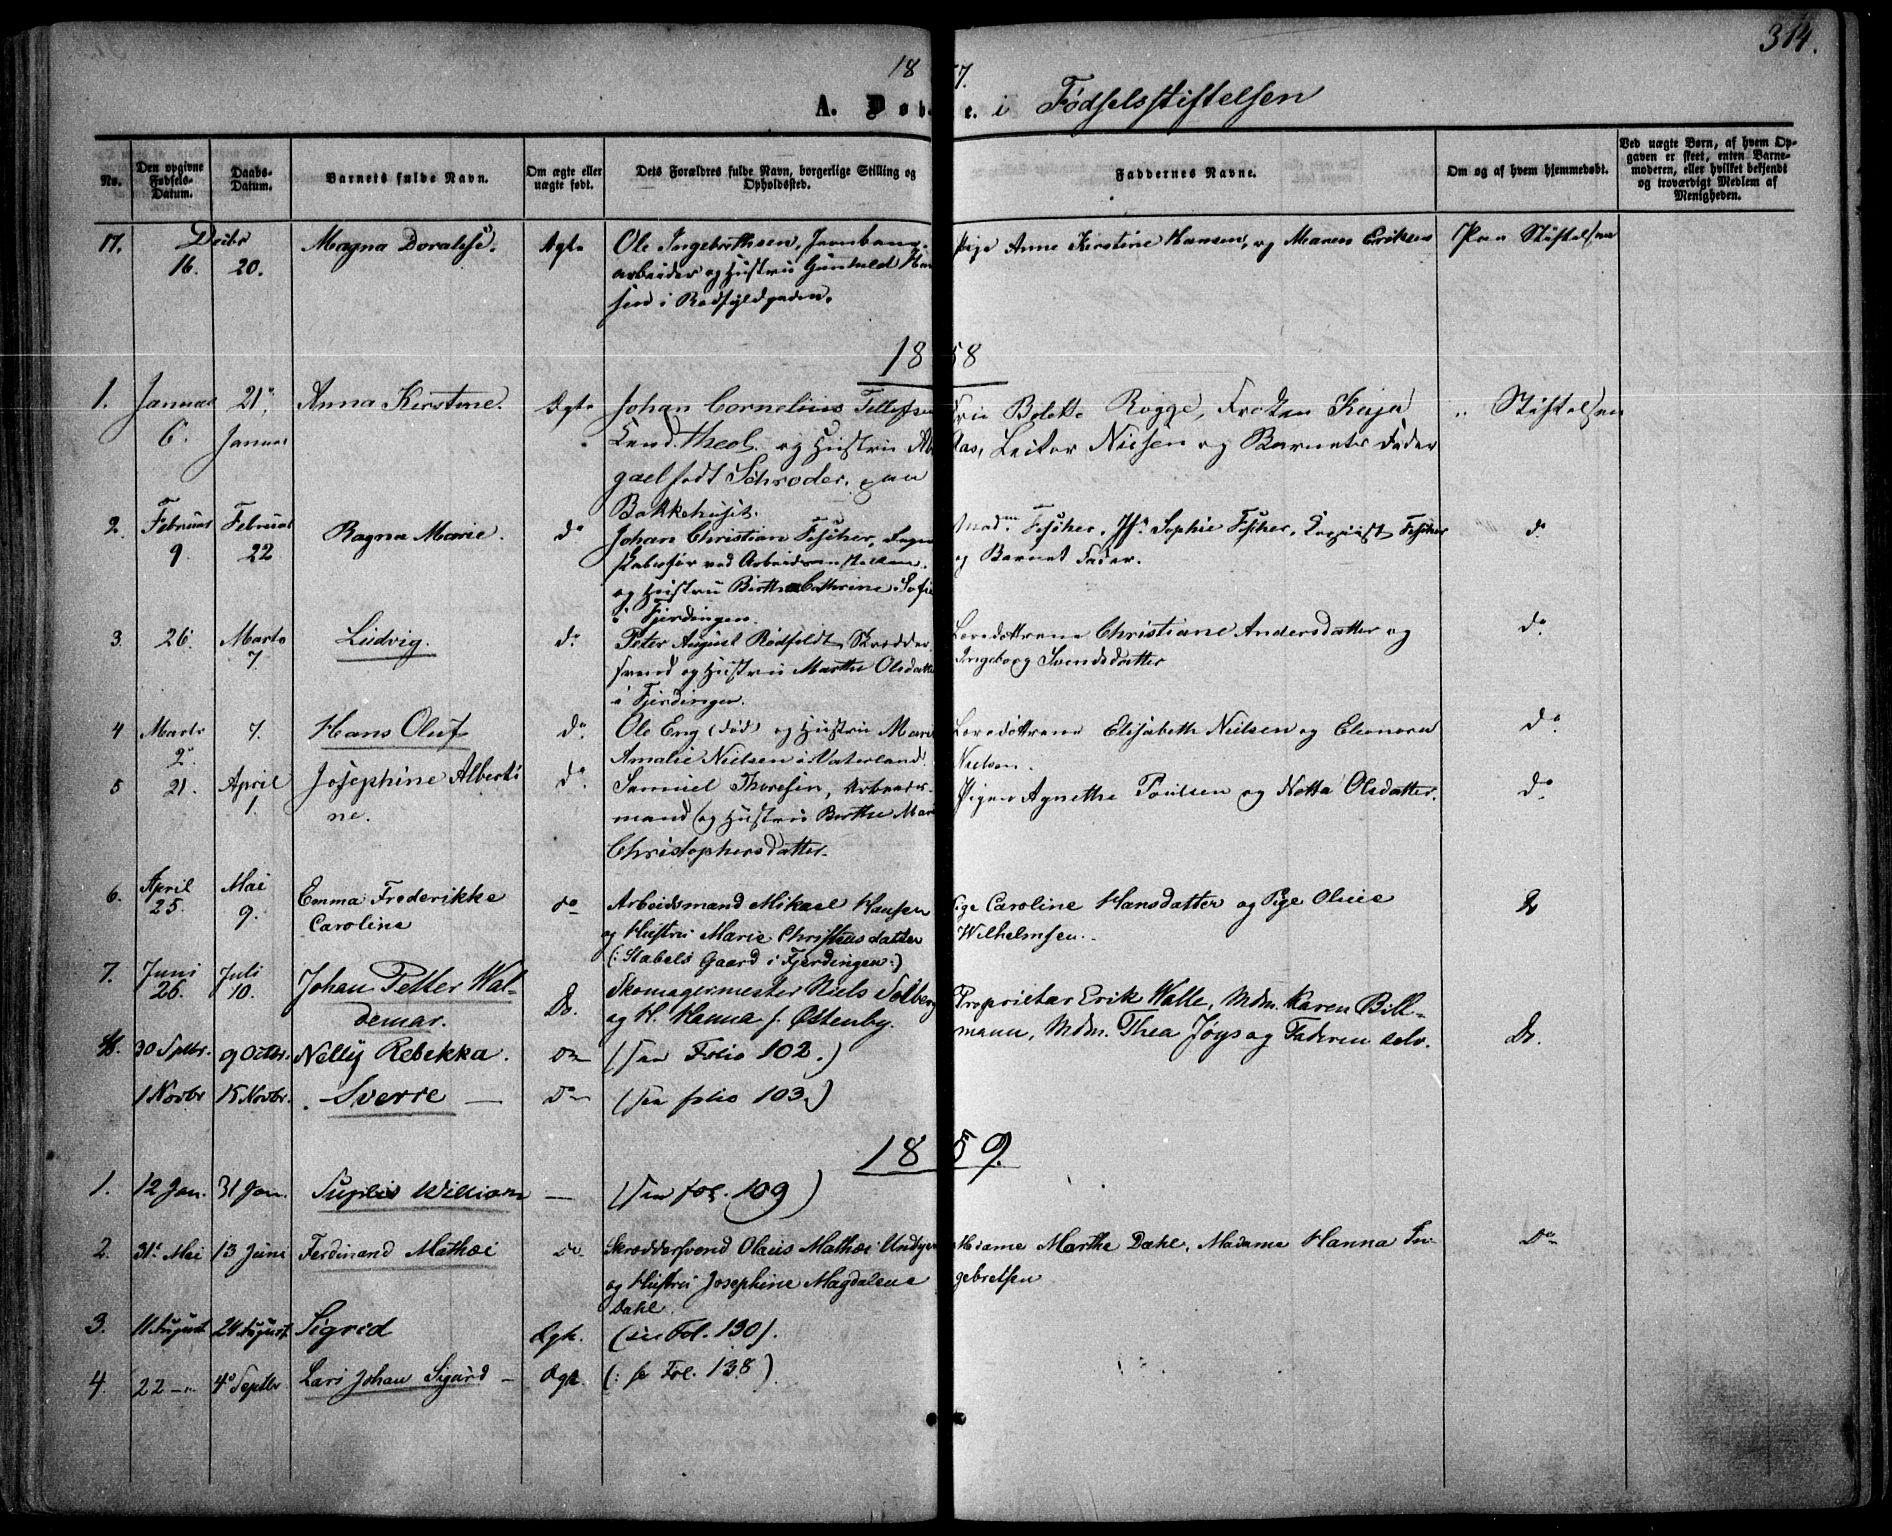 314.
1857.
A. Døbte. i Fødselsstiftelsen
No.
Den opgivne Fødsels-Datum.
Daabs-Datum.
Barnets fulde Navn.
Om ægte eller uægte født.
Dets Forældres fulde Navn, borgerlige Stilling og Opholdssted.
Faddernes Navne.
Om og af hvem hjemmedøbt.
Ved uægte Børn, af hvem Opgaven er skeet, enten Barnemoderen, eller hvilket bekjendt og troværdigt Medlem af Menigheden.
17. Decbr 16. 20. Magna Doralise. Ægte Ole Ingebrethsen, Jernbane- Pige Anne Kirstine Hansen, og Maren Eriksen Paa Stiftelsen
arbeider og Hustru Gunhild Han
sen i Rødfyldgaden.
1858
1. Januar 6. 21 Januar Anna Kirstine. Ægte Johan Cornelius Tellefsen Fru Bolette Rogge, Frøken Kaja Stiftelsen
Cand. theol. og Hustru Abi Aas, Lector Nissen og Barnets Fader
gael født Schrøder. paa
Bakkehuset.
2. Februar 9 Februar 22 Ragna Marie. do Johan Christian Fischer, Regn Madm Fischer, Jfr Sophie Fischer, Fischer do
skabsfør ved Arbeidsanstalten, og Barnet Fader.
og Hustru Birthe Cathrine Sofie
i Fjerdingen.
3. 26. Marts 7 Ludvig. do Peter August Rødfeldt, Skrædder Løvedøttrene Christiane Andersdatter og do
svend og Hustru Marthe Olsdatter Ingeborg Svendsdatter
i Fjerdingen.
4 Marts 2. 7. Hans Oluf do Ole Eng (død) og Hustru Marie Elisabeth Nielsen og Eleonora do
Amalie Nielsen i Vaterland. Nielsen.
5 21. April 1. Josephine Alberti do Samuel Thoresen, Arbeids- Piger Agnethe Poulsen og Netta Olsdatter. do
ne. mand og Hustru Berthe Marie
Christophersdatter.
6. April 25. Mai 9. Emma Frederikke do Arbeidsmand Mikael Hansen Pige Caroline Hansdatter og Pige Oluie Do
Caroline og Hustru Marie Christiansdatter Wilhelmsen.
(: Stabels Gaard i Fjerdingen :)
7. Juni 26. Juli 10. Johan Petter Wal- Do. Skomagermester Niels Solberg Proprietær Erik Walle, Mdm. Karen Bill-
demar. og H. Hanna f. Østenby. mann, Mdm. Thea Joys og Faderen selv. Do.
8. 30 Septbr. 9 Octbr. Nelly Rebekka. do (see Folio 102.)
1 Novbr 15 Novbr. Sverre do (see folio 103.)
1859.
1. 12 Jan. 31 Jan. William — (see fol. 109)
2. 31 Mai 13 Juni Ferdinand Mathæi do Skræddersvend Olaus Mathæi Undyen Madame Marthe Dahl, Madame Hanna In- Do
og Hustru Josephine Magdalene gebretsen
Dahl.
3. 11 August 24 August Sigrid Ægte. (see Fol. 130).
4. 22 — 4 Septbr Lars Johan Sigurd — Ægte. (: se Fol. 138)